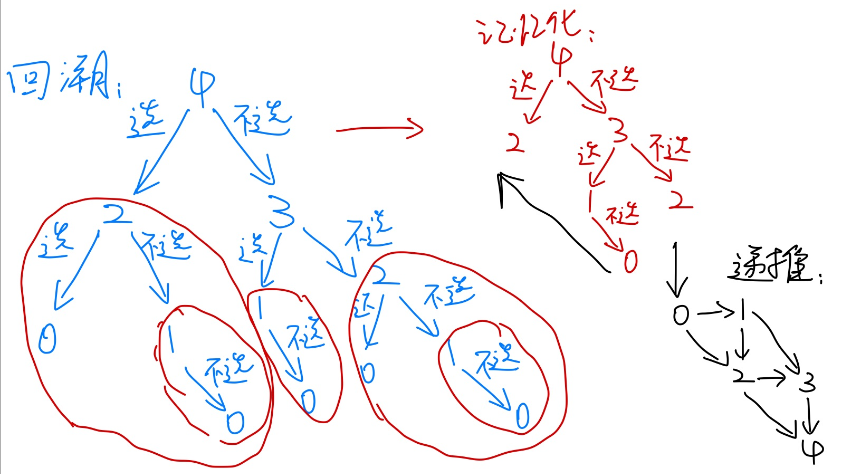 回溯：
4
选 不选
2 3
选 不选 选 不选
0 1 1 2
不选 不选 选 不选
0 0 0 1
不选
0
记忆化：
4
选 不选
2 3
选 不选
1 2
不选
0
递推：
0 1
2 3
4